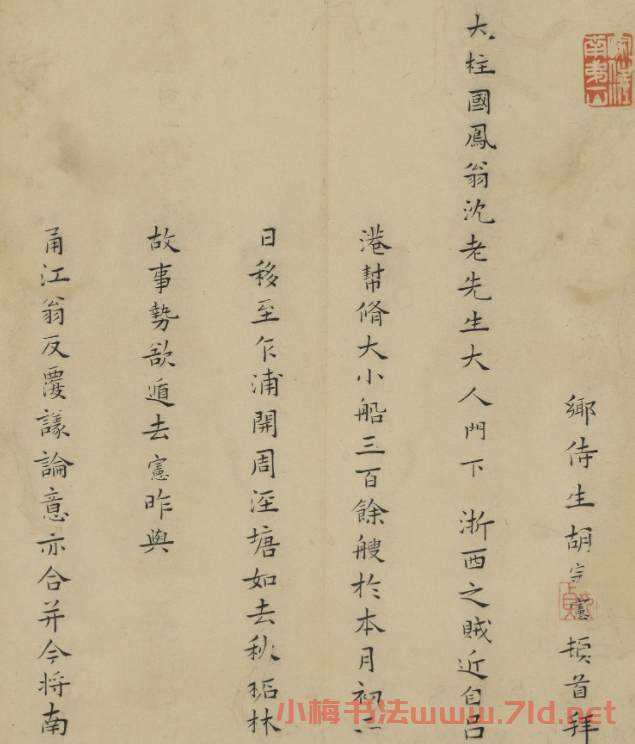 鄉侍生胡宗憲頓首拜
大柱國鳳翁沈老先生大人門下 浙西之賊近自呂
港幫脩大小船三百餘艘於本月初二
日移至乍浦開周涇塘如去秋 林
故事勢欲遁去憲昨與
甬江翁反覆議論意亦合并今將南
小梅书法www.7ld.net